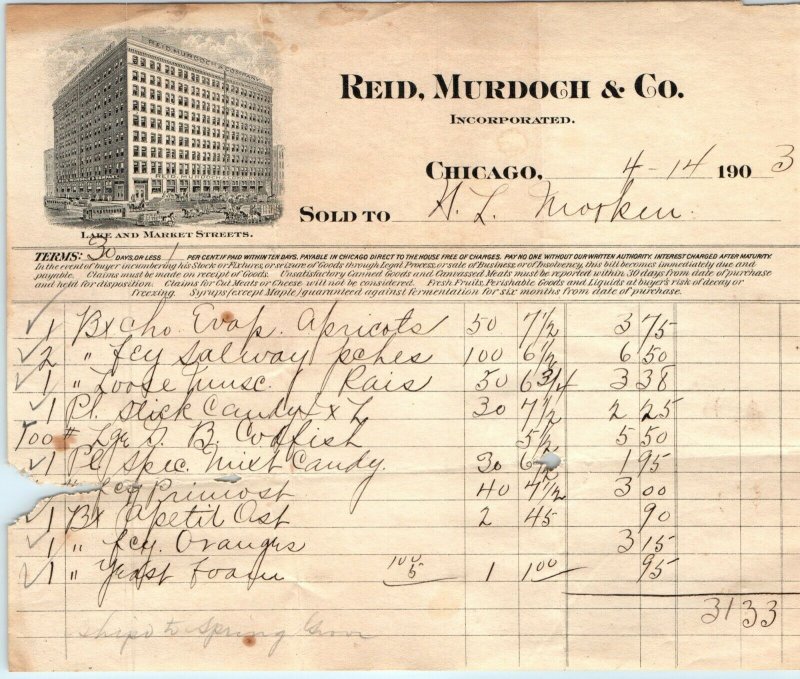 REID MURDOCH & COMPANY
REID, MURDOCH & CO.
INCORPORATED.
CHICAGO, 4-14 1903
SOLD TO H. L. Morken.
LAKE AND MARKET STREETS.
TERMS: 30 DAYS, OR LESS 1 PER CENT. IF PAID WITHIN TEN DAYS. PAYABLE IN CHICAGO DIRECT TO THE HOUSE FREE OF CHARGES. PAY NO ONE WITHOUT OUR WRITTEN AUTHORITY. INTEREST CHARGED AFTER MATURITY.
In the event of buyer incumbering his Stock or Fixtures, or seizure of Goods through Legal Process, or sale of Business, or of Insolvency, this bill becomes immediately due and
payable. Claims must be made on receipt of Goods. Unsatisfactory Canned Goods and Canvassed Meats must be reported within 30 days from date of purchase
and held for disposition. Claims for Cut Meats or Cheese will not be considered. Fresh Fruits, Perishable Goods and Liquids at buyer's risk of decay or
freezing. Syrups (except Maple) guaranteed against fermentation for six months from date of purchase.
1 Bx Cho. Evap. Apricots 50 7 1/2 3 75
2 " fcy Salway pches 100 6 1/2 6 50
1 " Loose Musc. Rais 50 6 3/4 3 38
1 Pl. Stick Candy L x L 30 7 1/2 2 25
100 # Lge G. B. Codfish 5 1/2 5 50
1 Pl Spec. Mixt Candy. 30 6 1/2 1 95
" fcy Primost 40 4 1/2 3 00
1 Bx Apetit Ost 2 45 90
1 " fcy. Oranges 3 15
1 " Yeast Foam 100 5 1 1 00 95
31 33
Shipd to Spring Grove